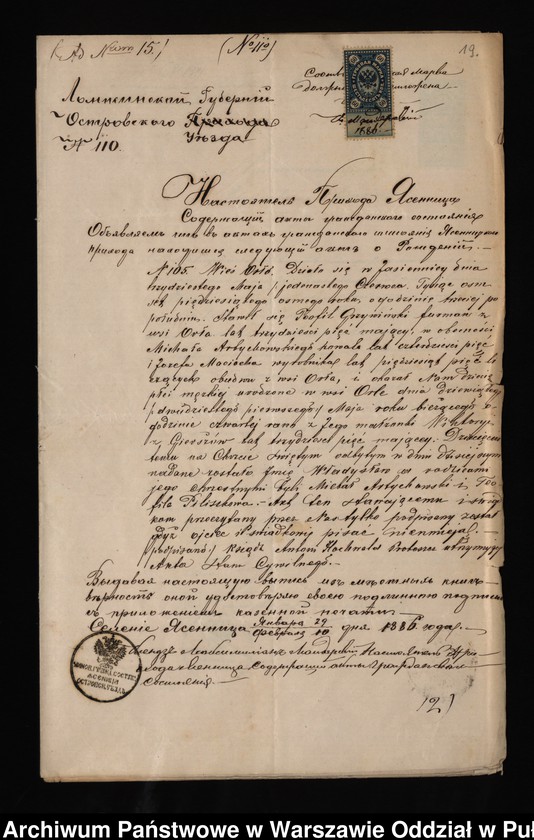 Ad Num 15.
(№ 110)
19.
Ломжинской Губернiи
Островского Прихода
Уѣзда
№ 110.
марка
1886
Настоятель Прихода Ясеница
Содержащiй акты гражданского состоянiя
Объявляемъ что въ актахъ гражданского состоянiя Ясеницкого
прихода находится следующiй актъ о Рожденiи.
№ 105. Wieś Orło. Działo się w Jasienicy dnia
trzydziestego Maja / jedenastego Czerwca. Tysiąc osm
set pięćdziesiątego osmego roku, o godzinie trzeciej po
południu. Stawił się Teofil furman z
wsi Orła lat trzydzieści pięć mający, w obecności
Michała Artychowskiego kowala lat czterdzieści pięć
i Józefa wyrobnika lat pięćdziesiąt pięć li
czących obudwu z wsi Orła, i okazał Nam dziecię
płci męzkiej urodzone w wsi Orle dnia dziewiątego
/ dwudziestego pierwszego / Maja roku bieżącego o
godzinie czwartej rano z jego małżonki Wiktoryi
z lat trzydzieści pięć mającej. Dziecięciu
temu na Chrzcie Świętym odbytym w dniu dzisiejszym
nadane zostało imię Władysław a rodzicami
jego chrzestnymi byli Michał Artychowski i Teo
fila. Akt ten stawającemu i świad
kom przeczytany przez Nas tylko podpisany został
gdyż ojciec i świadkowie pisać nieumieją.
/podpisano/ Ksiądz Antoni
Akta Stanu Cywilnego.
Выдавая настоящую выпись изъ мѣстныхъ книгъ
вѣрность оной удостовѣряю своею подлинною подписью
съ приложенiемъ казенной печати.
Селенiе Ясеница Января 29 / Февраля 10 дня 1886 года.
Ксендзъ Настоятель При
хода Ясеница Содержащiй акты Гражданского
Состоянiя.
(2)
Archiwum Państwowe w Warszawie Oddział w Puł